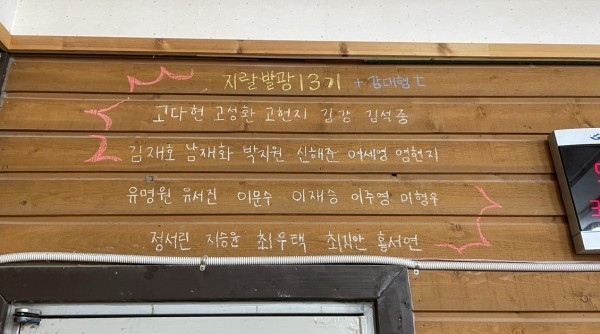 지랄발광 13기 + 감대형 t
고다현 고성환 고현지 김강 김석중
김재호 남재화 박지원 신해준 여세영 염현지
유명원 유서진 이문수 이재승 이주영 이형우
정서린 지승윤 최우택 최지안 홍서연